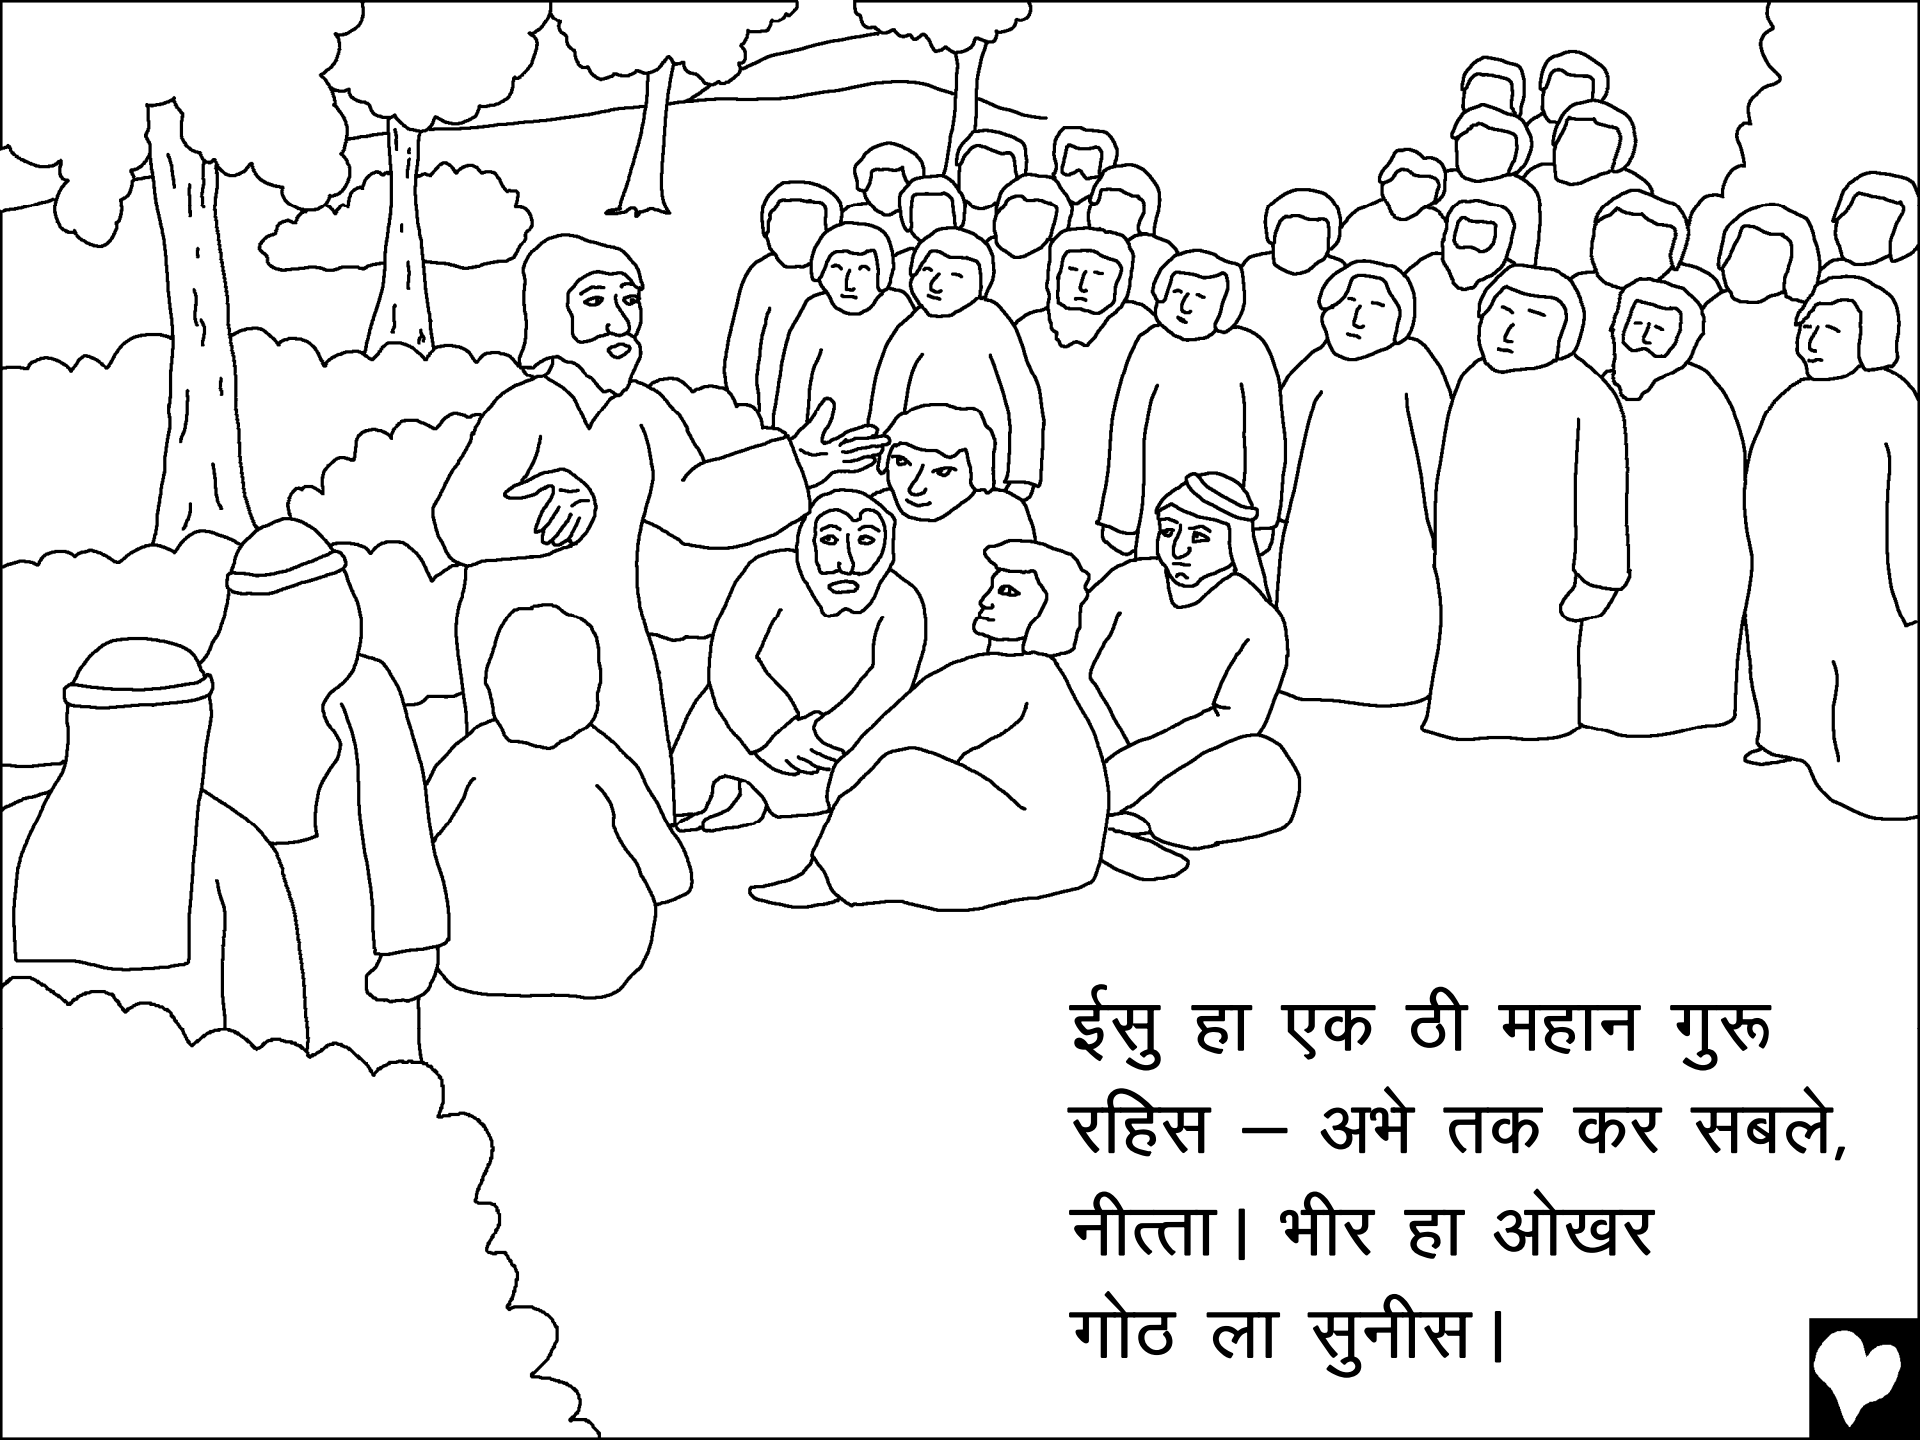 ईसु हा एक ठी महान गुरू
रहिस – अभे तक कर सबले,
नीत्ता। भीर हा ओखर
गोठ ला सुनीस।